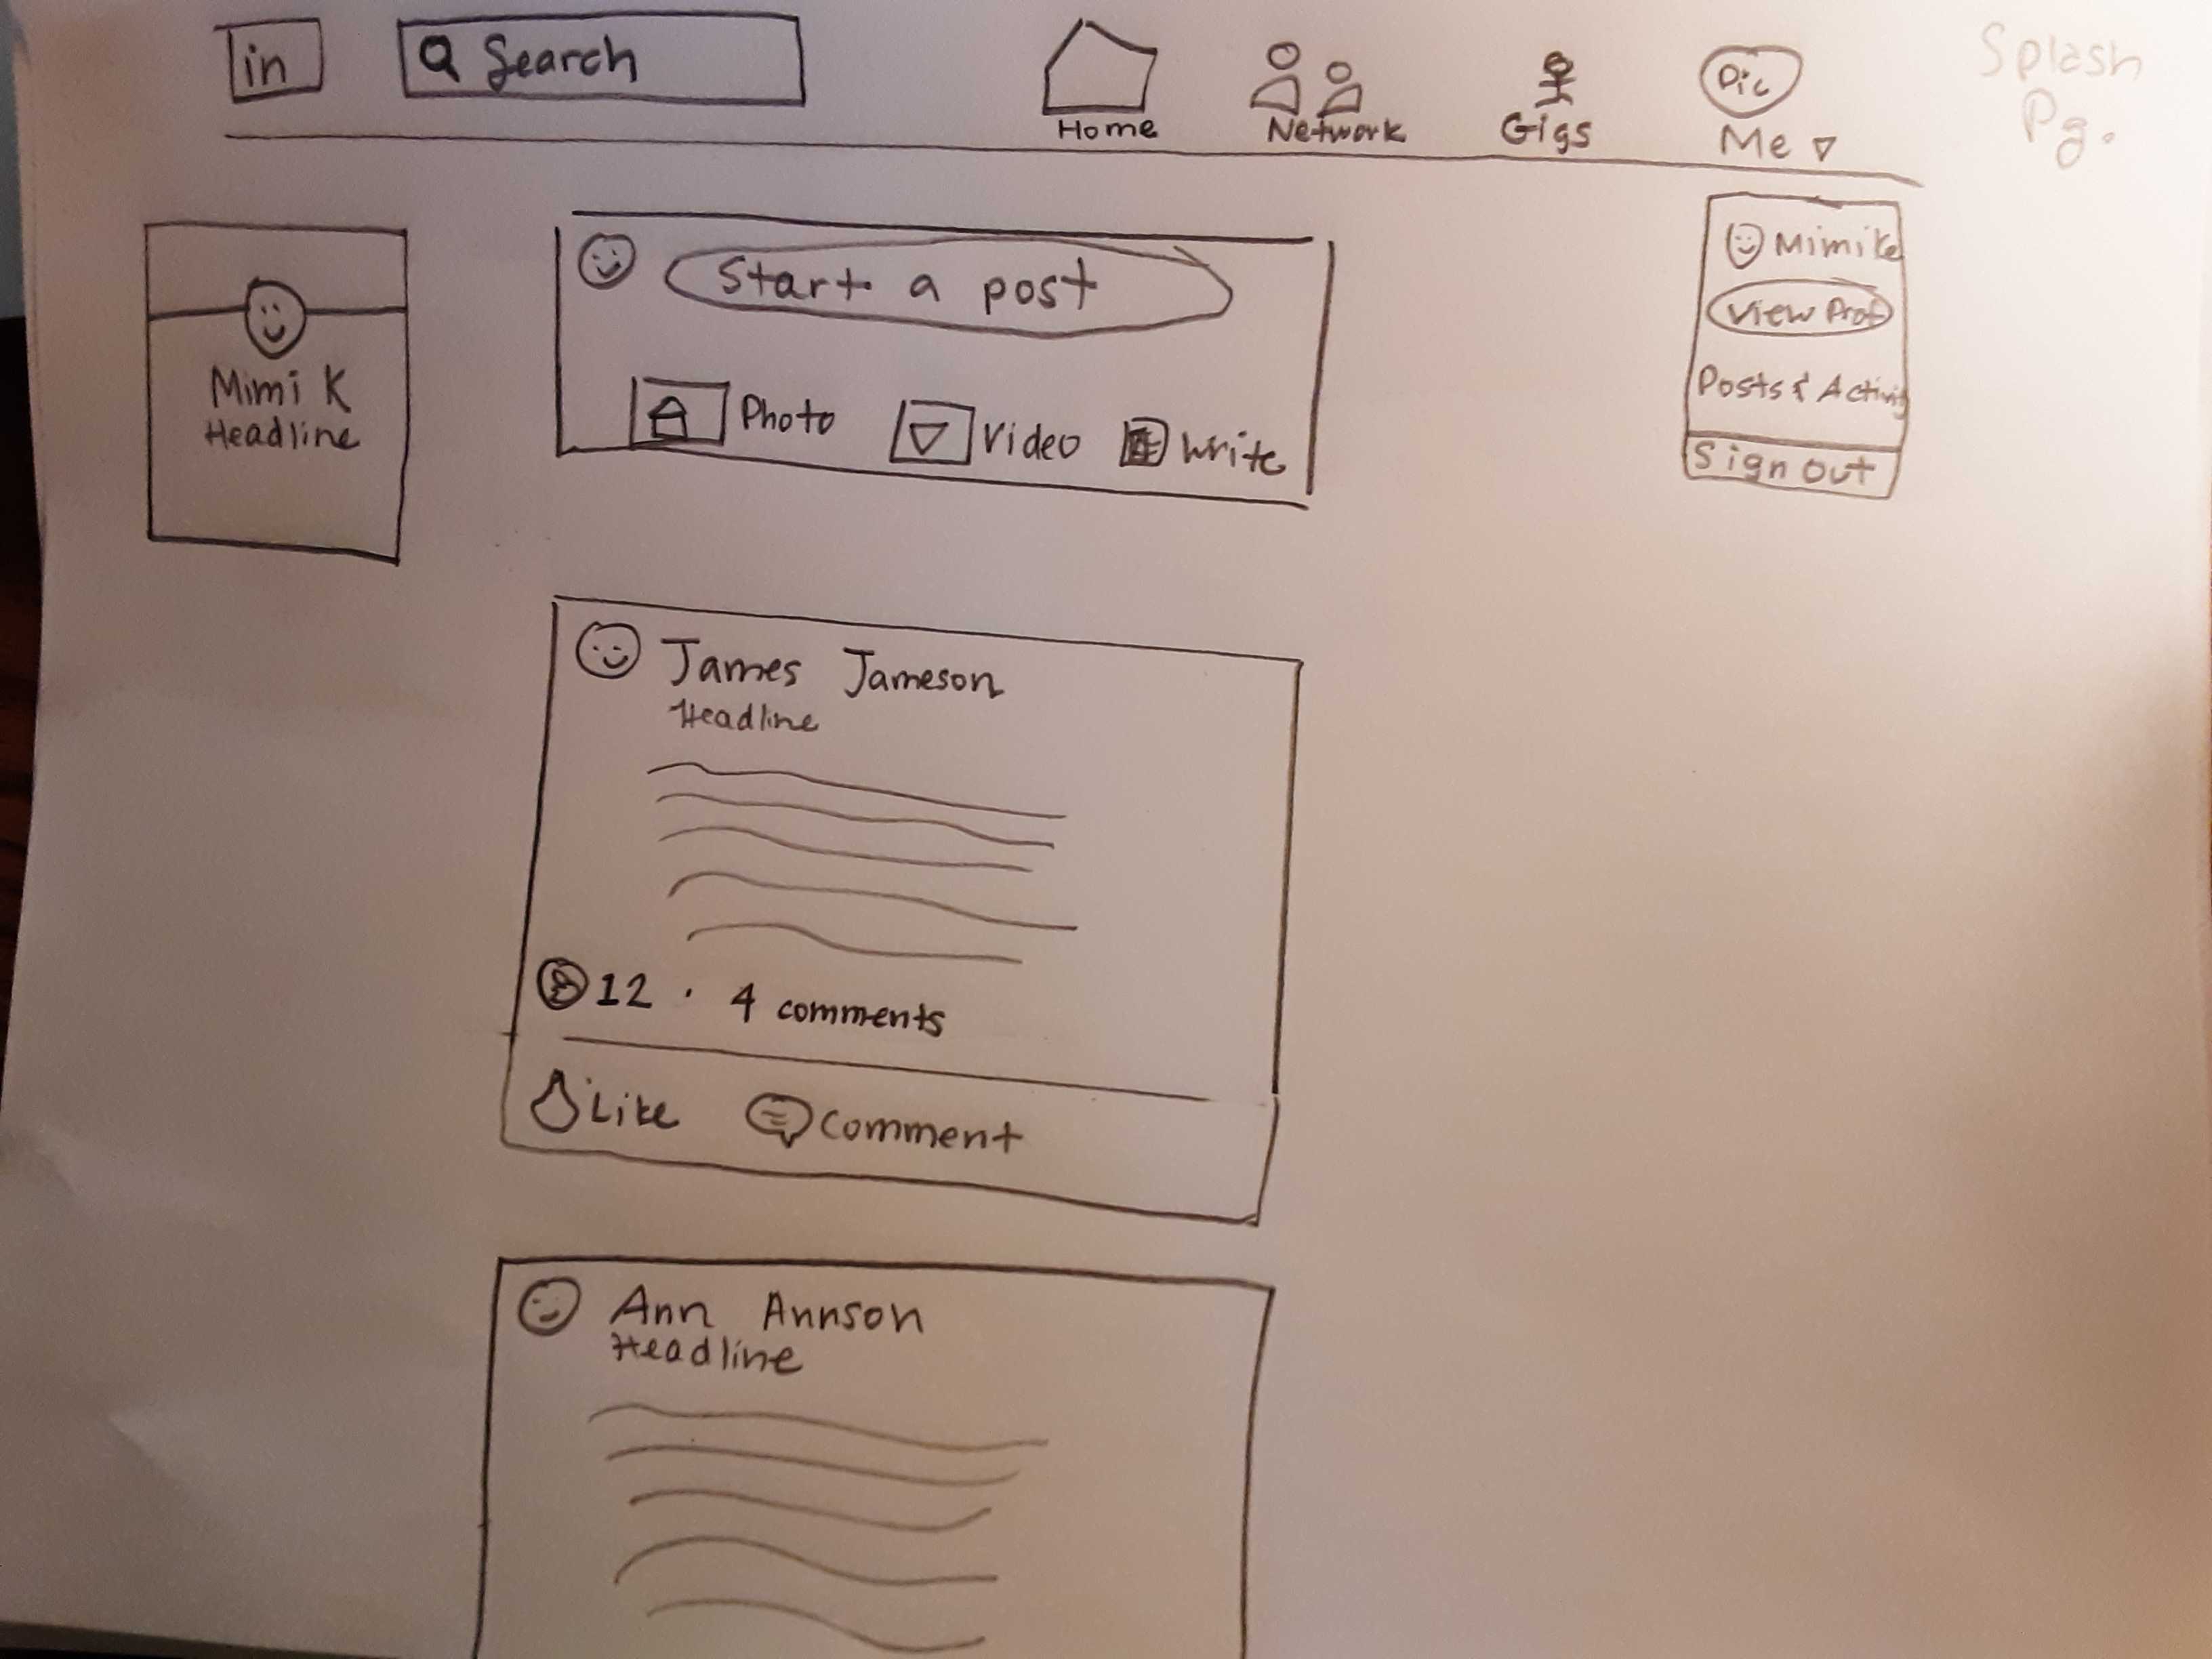 in
Search
Home
Network
Gigs
Pic
Me
Splash
Pg.
Mimi K
Headline
Start a post
Photo
Video
Write
Mimi K
View Prof
Posts & Activity
Sign Out
James Jameson
Headline
12 · 4 comments
Like
Comment
Ann Annson
Headline